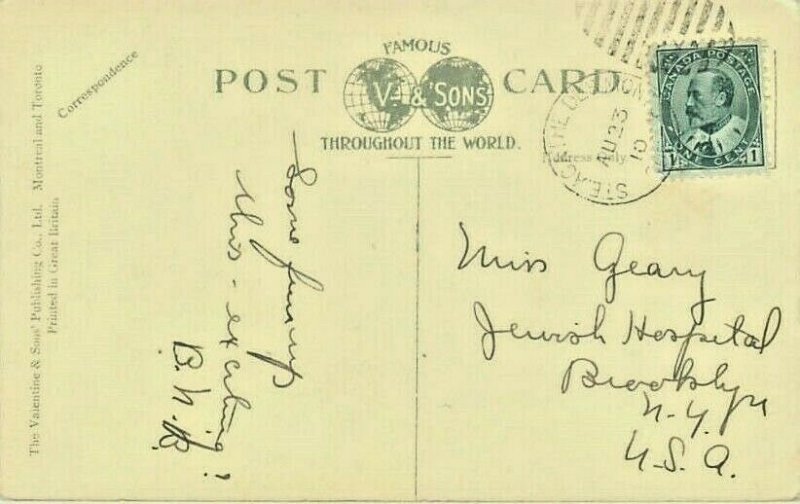 The Valentine & Sons' Publishing Co., Ltd. Montreal and Toronto
Printed in Great Britain
Correspondence
FAMOUS
POST CARD
V. & SONS
THROUGHOUT THE WORLD.
Address only
AU 23
10
CANADA POSTAGE
1 ONE CENT 1
Some fun up
this - exciting?
B.N.B.
Miss Geary
Jewish Hospital
Brooklyn
N.Y.
U.S.A.